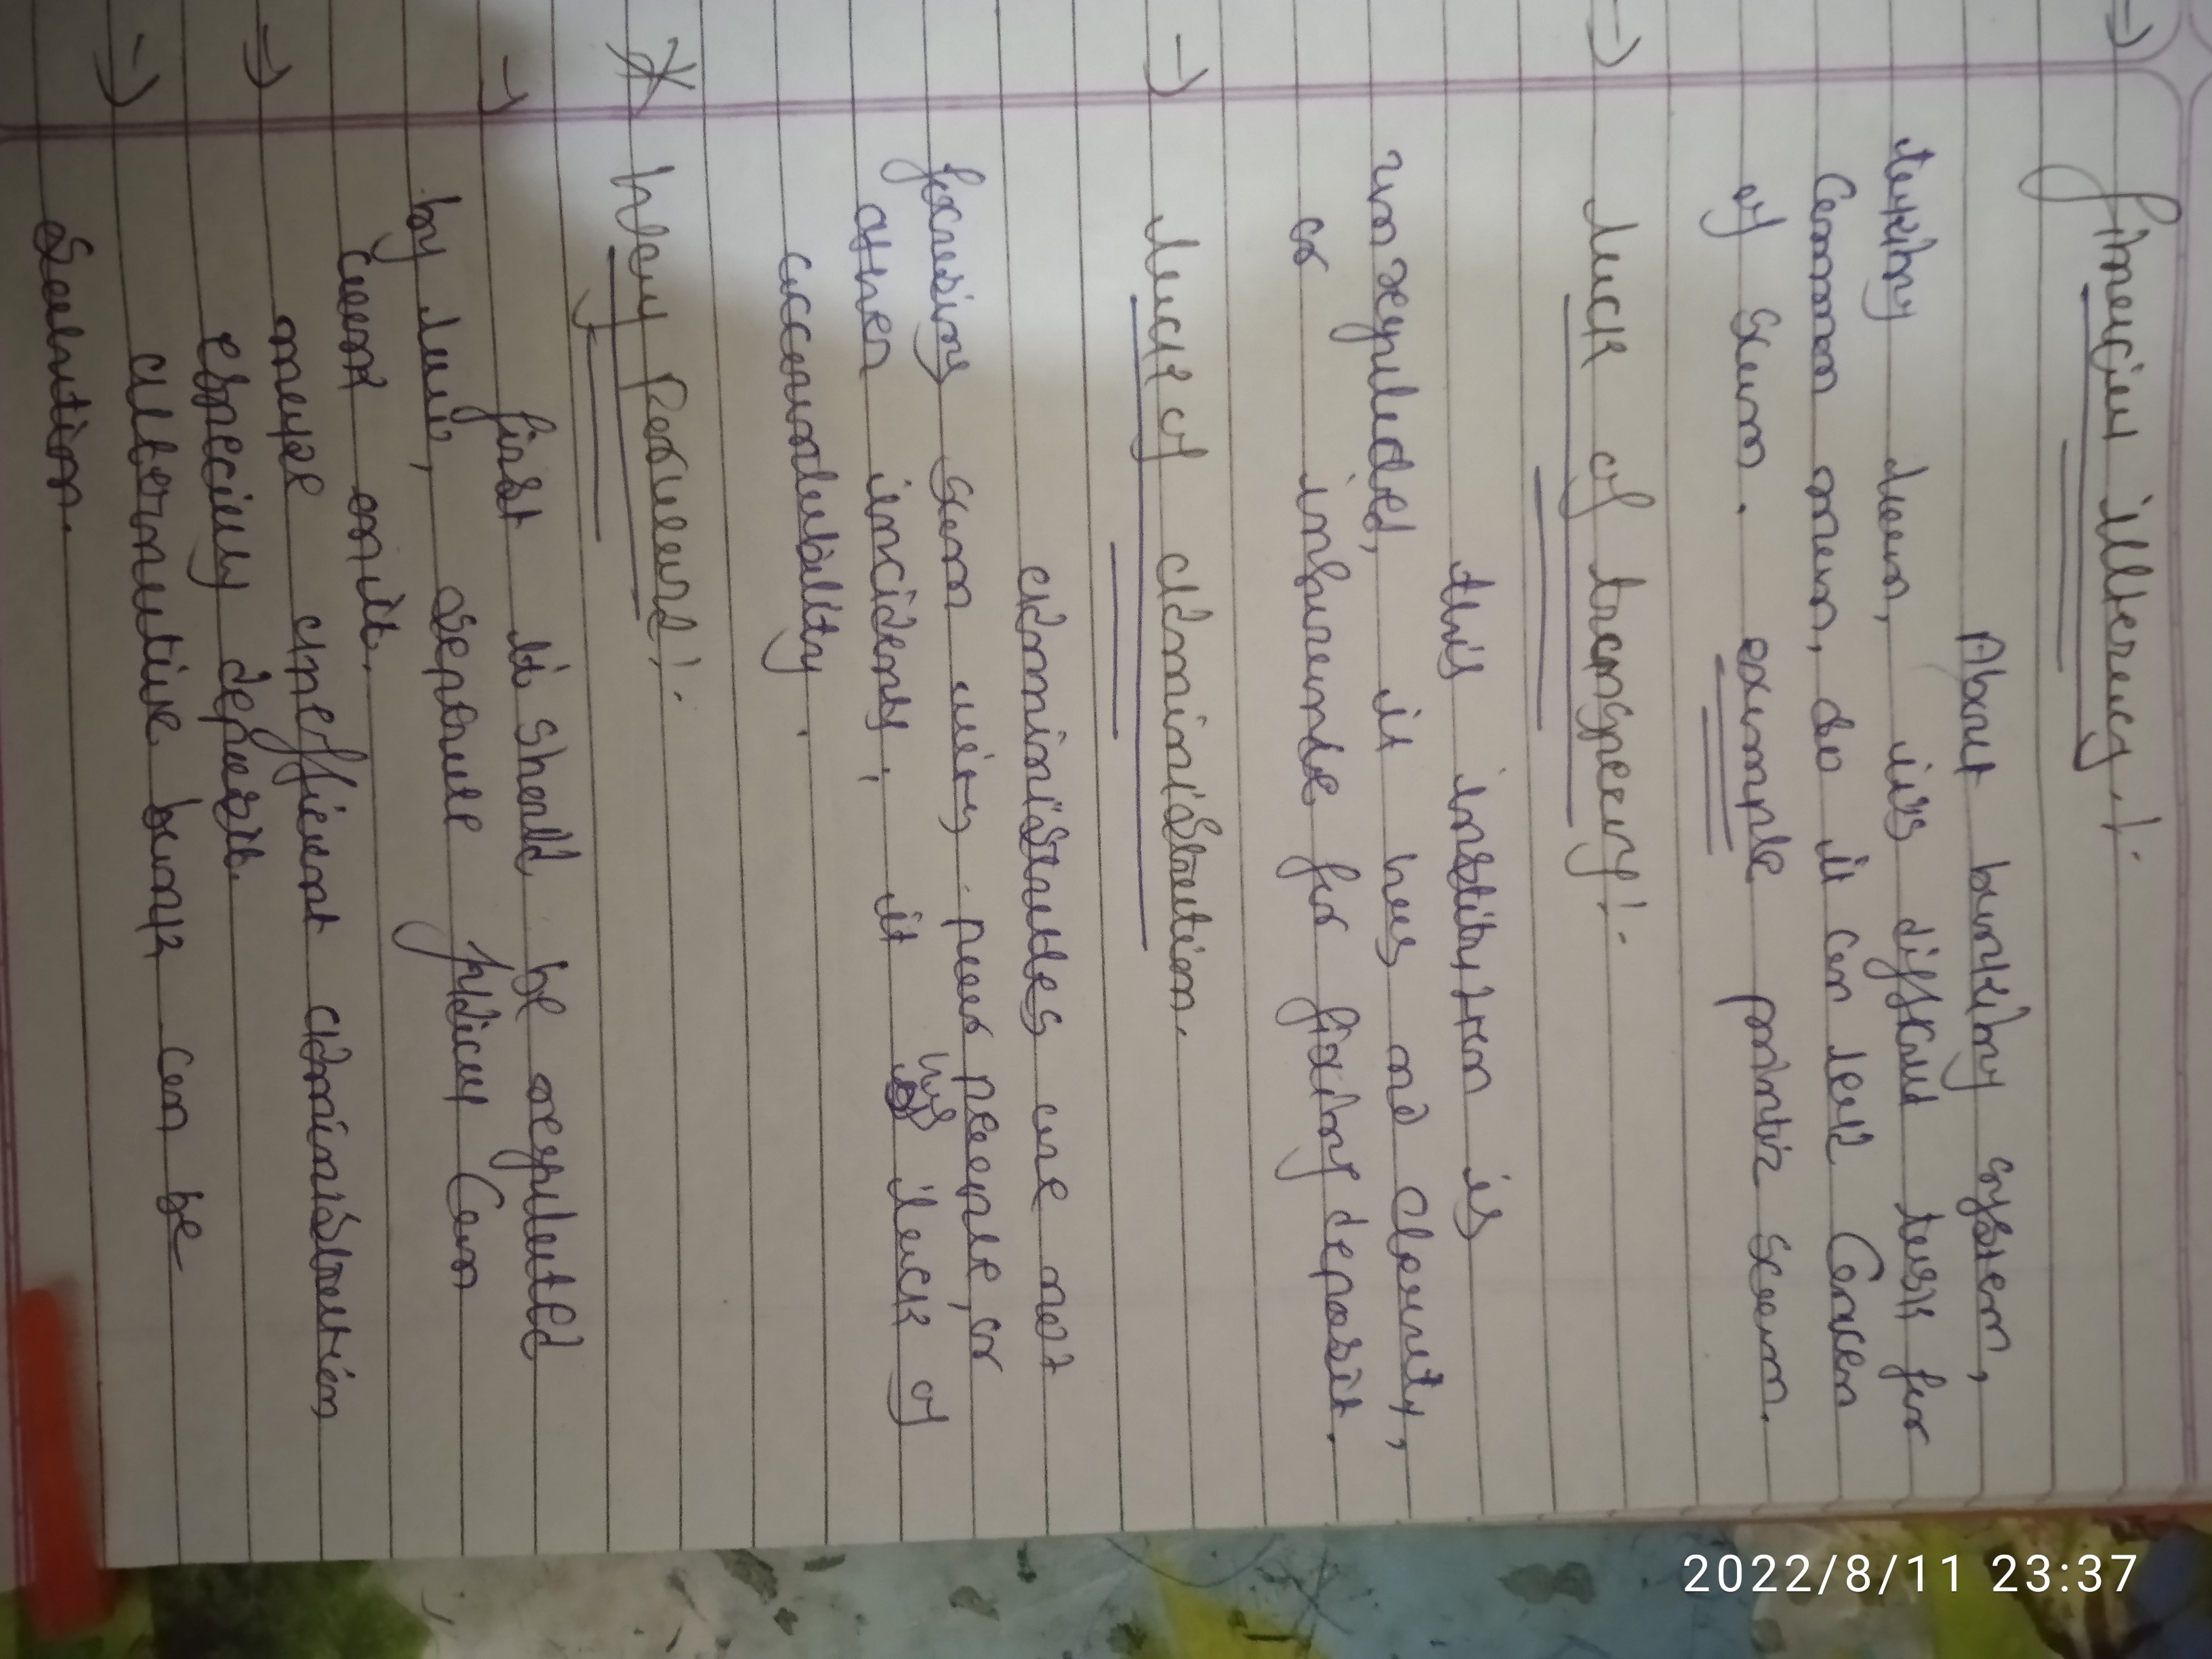 => financial illiteracy !-
About banking system,
taking loan, its difficult task for
Common man, so it can lead Cancer
of scam. example ponzi scam.
=> luck of transpercy !-
this institution is
unregulated, it has no clarity,
or insurance for fixing deposit.
-> luck of administration.
administrates are not
focusing scam why poor people, or
other incidents, it has lack of
accountability.
* Way forward !-
-> first it should be regulated
by law, seperate policy can
court unit.
=> make an efficient administration
especially deposit.
=> alternative bank can be
Solution.
2022/8/11 23:37